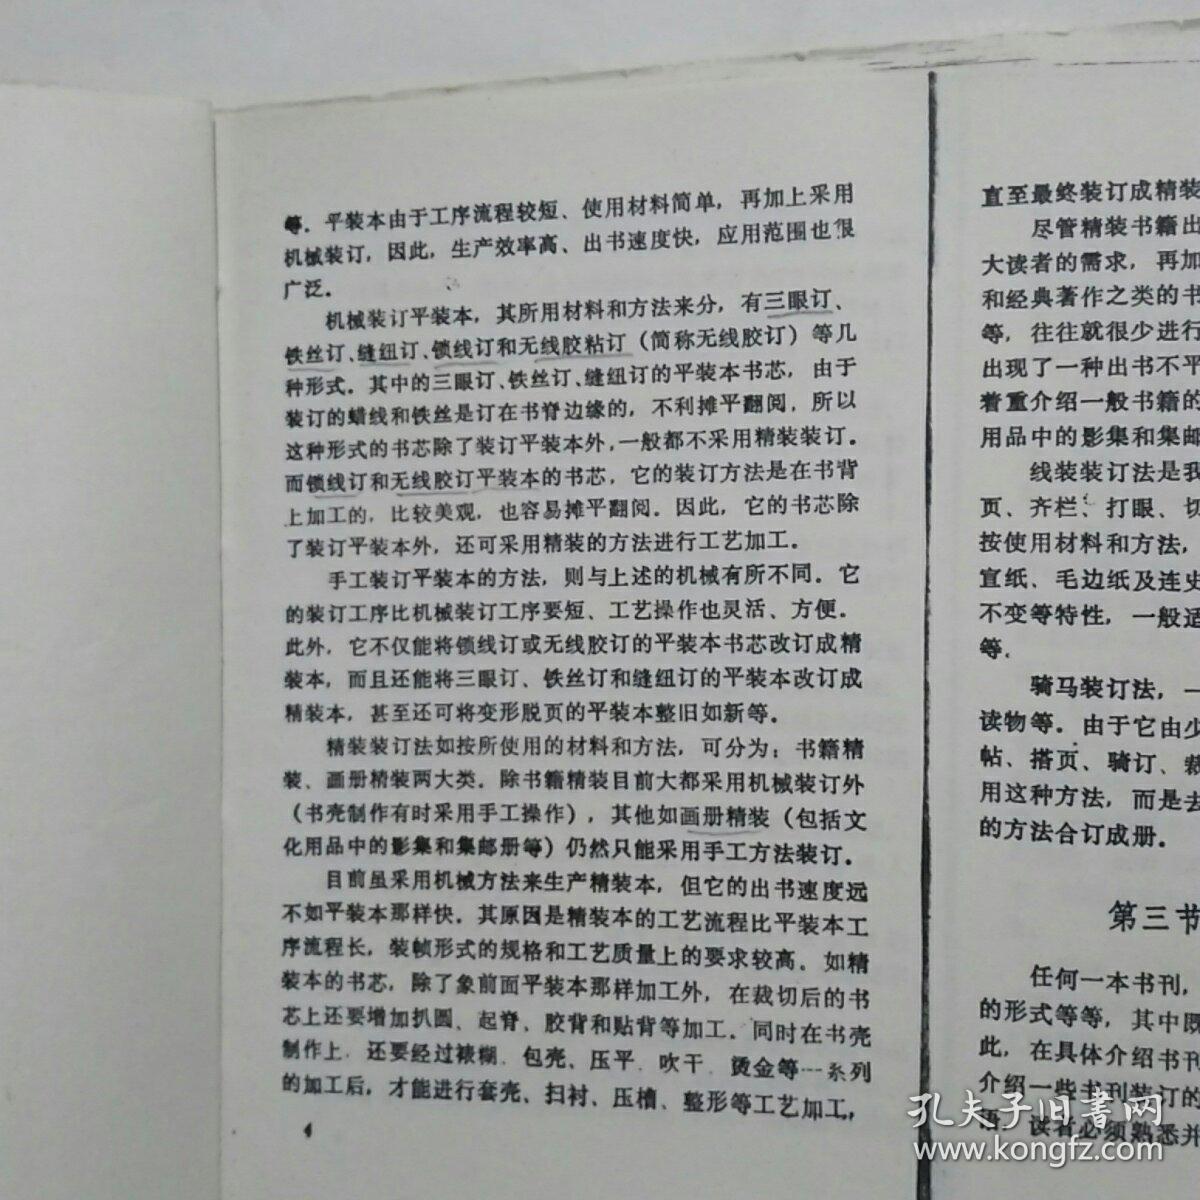 等．平装本由于工序流程较短、使用材料简单，再加上采用
机械装订，因此，生产效率高、出书速度快，应用范围也很
广泛．
机械装订平装本，其所用材料和方法来分，有三眼订、
铁丝订、缝纽订、锁线订和无线胶粘订（简称无线胶订）等几
种形式．其中的三眼订、铁丝订、缝纽订的平装本书芯，由于
装订的蜡线和铁丝是订在书脊边缘的，不利摊平翻阅，所以
这种形式的书芯除了装订平装本外，一般都不采用精装装订．
而锁线订和无线胶订平装本的书芯，它的装订方法是在书背
上加工的，比较美观，也容易摊平翻阅。因此，它的书芯除
了装订平装本外，还可采用精装的方法进行工艺加工．
手工装订平装本的方法，则与上述的机械有所不同．它
的装订工序比机械装订工序要短、工艺操作也灵活、方便．
此外，它不仅能将锁线订或无线胶订的平装本书芯改订成精
装本，而且还能将三眼订、铁丝订和缝纽订的平装本改订成
精装本，甚至还可将变形脱页的平装本整旧如新等。
精装装订法如按所使用的材料和方法，可分为：书籍精
装、画册精装两大类．除书籍精装目前大都采用机械装订外
（书壳制作有时采用手工操作），其他如画册精装（包括文
化用品中的影集和集邮册等）仍然只能采用手工方法装订．
目前虽采用机械方法来生产精装本，但它的出书速度远
不如平装本那样快．其原因是精装本的工艺流程比平装本工
序流程长，装帧形式的规格和工艺质量上的要求较高．如精
装本的书芯，除了象前面平装本那样加工外，在裁切后的书
芯上还要增加扒圆、起脊、胶背和贴背等加工．同时在书壳
制作上，还要经过裱糊、包壳、压平、吹干、烫金等一系列
的加工后，才能进行套壳、扫衬、压槽、整形等工艺加工，
4
直至最终装订成精装
尽管精装书籍出
大读者的需求，再加
和经典著作之类的书
等，往往就很少进行
出现了一种出书不平
着重介绍一般书籍的
用品中的影集和集邮
线装装订法是我
页、齐栏、打眼、切
按使用材料和方法，
宣纸、毛边纸及连史
不变等特性，一般适
等．
骑马装订法，一
读物等．由于它由少
帖、搭页、骑订、裁
用这种方法，而是去
的方法合订成册．
第三节
任何一本书刊，
的形式等等，其中既
此，在具体介绍书刊
介绍一些书刊装订的
语．读者必须熟悉并
孔夫子旧书网
www.kongfz.com